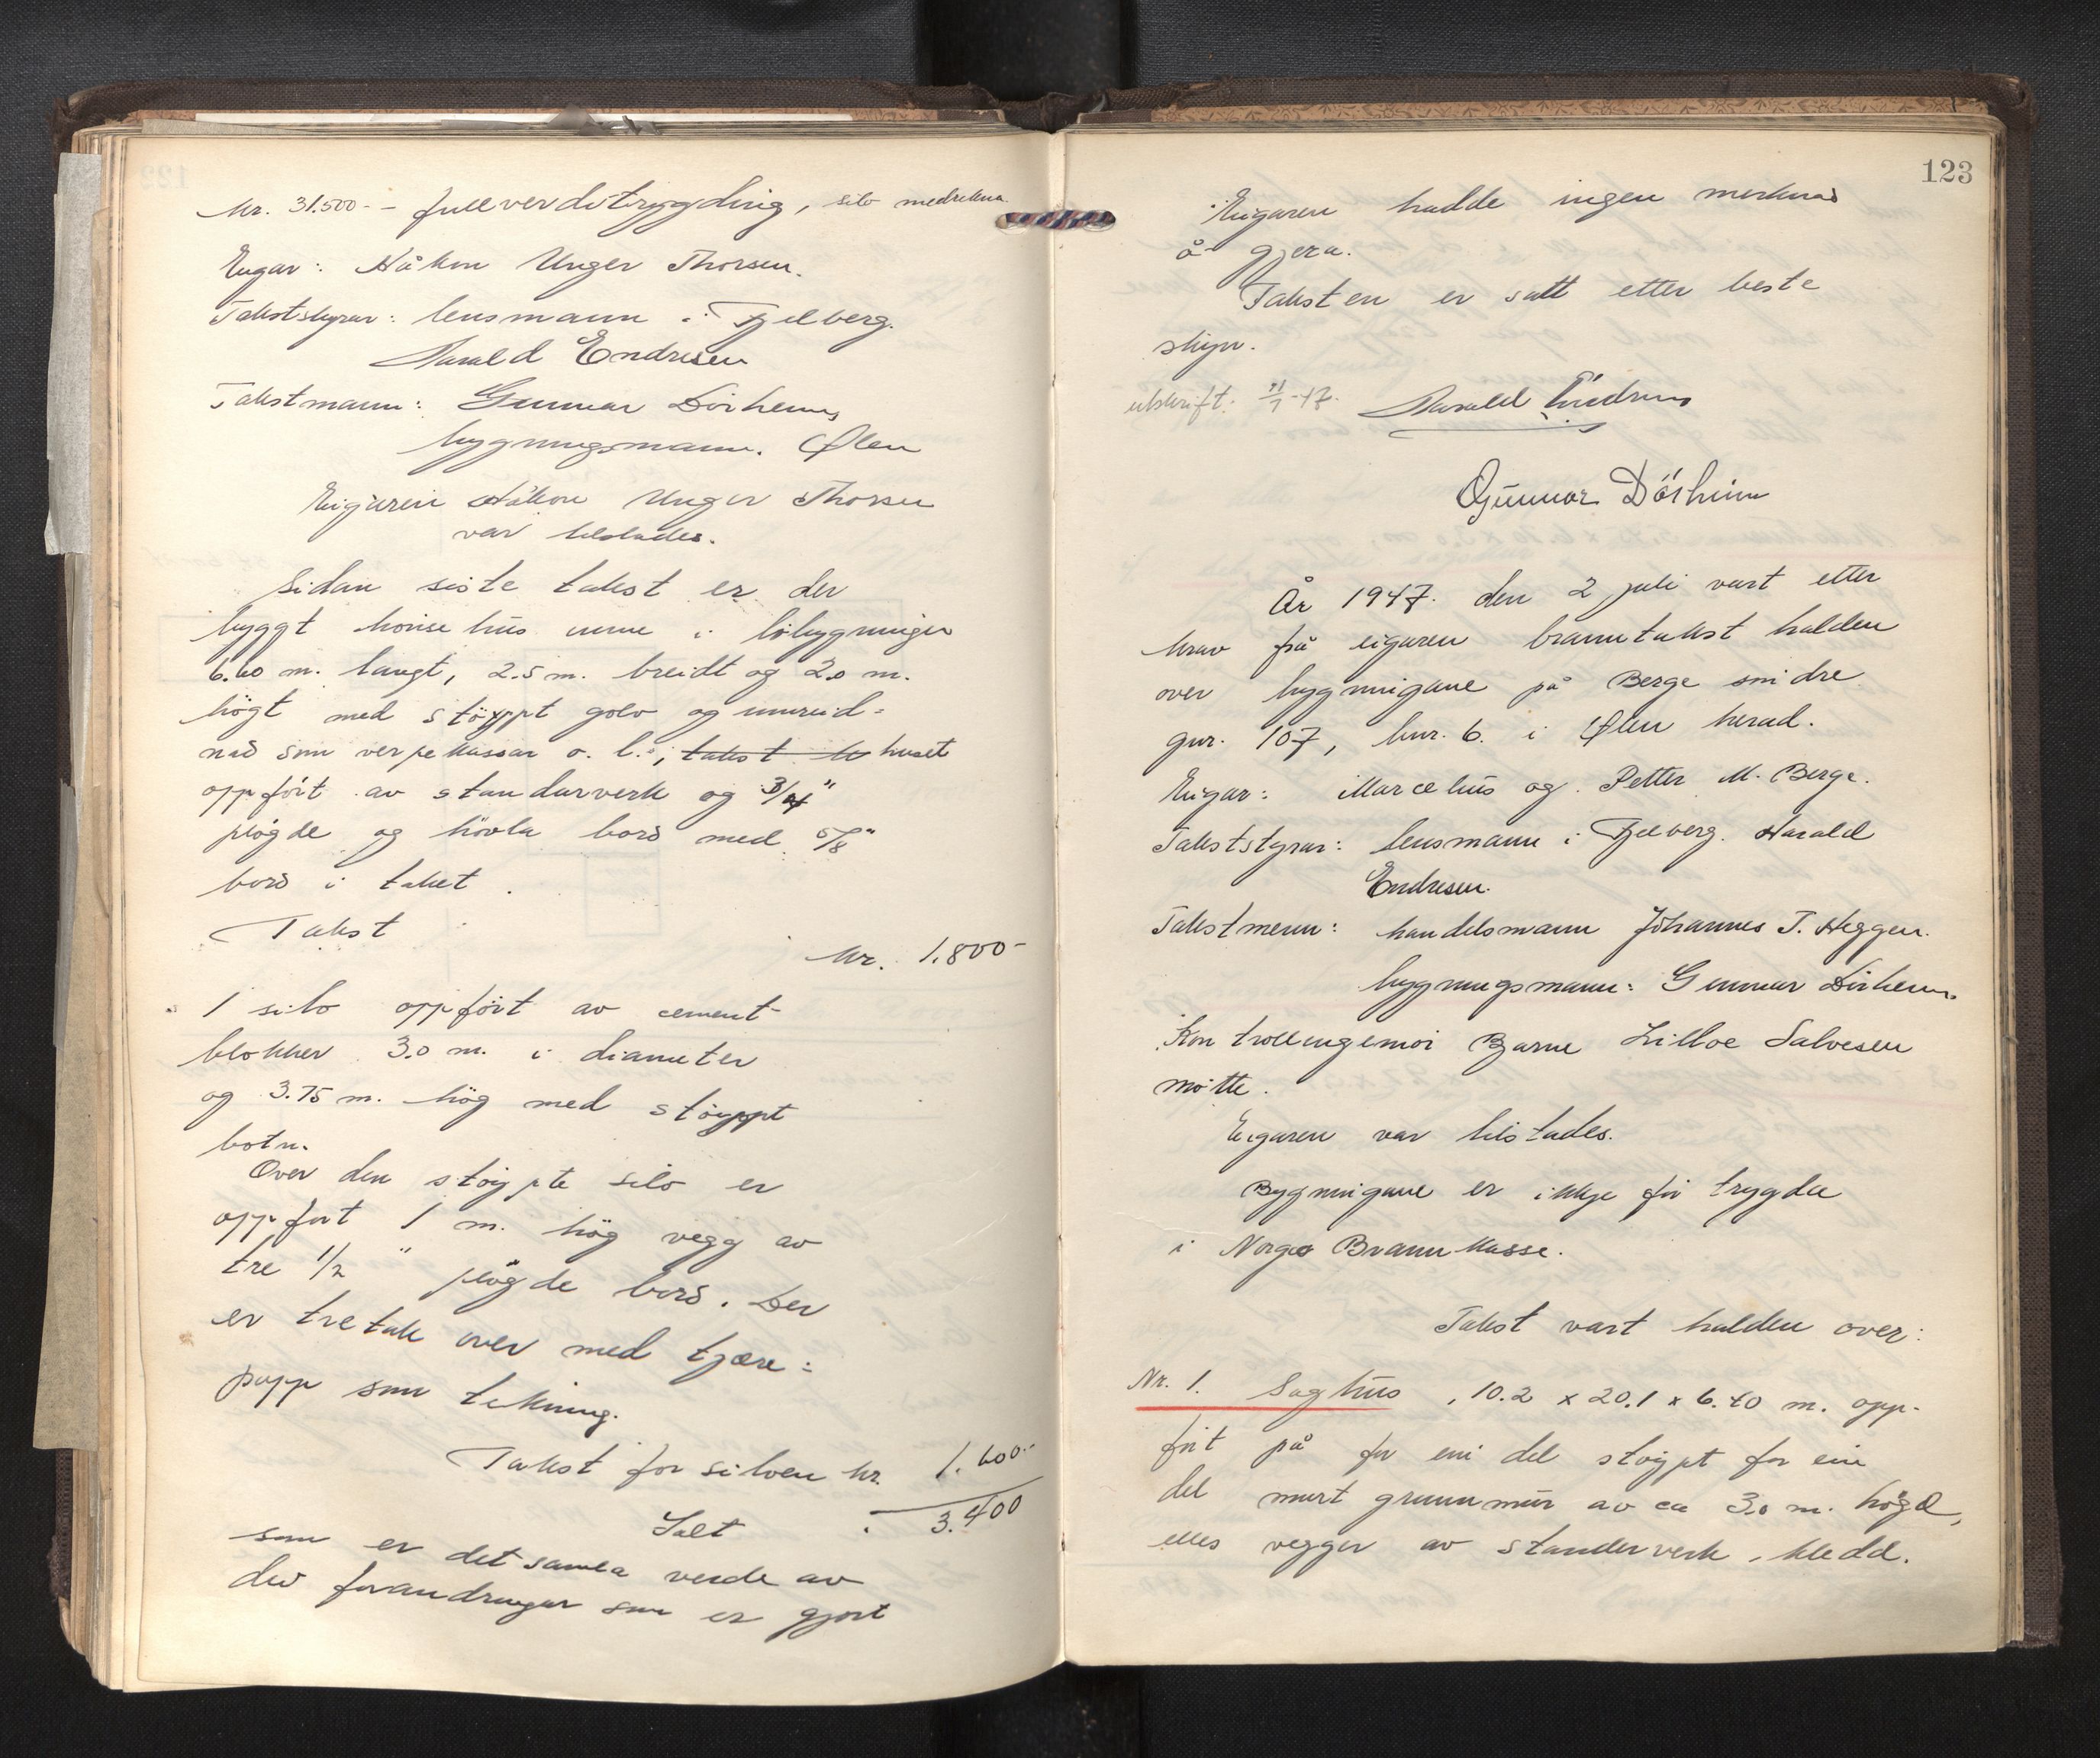 kr. 31.500.- - fullverditrygding, silo medrekna.
Eigar: Håkon Unger Thorsen.
Takststyrar: lensmann i Fjelberg.
Harald Endresen
Takstmann: Gunnar Dörheim,
bygningsmann. Ølen
Eigaren Håkon Unger Thorsen
var tilstades.
Sidan siste takst er der
byggt hönsehus inne i löbygningen
6.60 m. langt, 2.5 m. breidt og 2.0 m.
högt med stöypt golv og innreid-
nad som verpekassar o. l. ; takst kr huset
oppfört av standarverk og 3/4"
plögde og hövla bord med 5/8"
bord i taket.
Takst
kr. 1.800-
1 silo oppfört av cement-
blokker 3.0 m. i diameter
og 3.75 m. hög med stöypt
botn.
Over den stöypte silo er
oppfört 1 m. hög vegg av
tre 1/2 " plögde bord. Der
er tretak over med tjære=
papp som tekning.
Takst for siloen kr. 1.600.-
Ialt 3.400
som er det samla verde av
dei forandringar som er gjort
123
Eigaren hadde ingen merknad
å gjera.
Taksten er satt etter beste
skjøn.
utskrift: 11/7-47. Harald Endresen
Gunnar Dörheim
År 1947. den 2 juli vart etter
krav frå eigaren branntakst halden
over bygningane på Berge smidre
gnr. 107, bnr. 6. i Ølen herad.
Eigar: Marcelius og Petter M. Berge.
Takststyrar: lensmann i Fjelberg. Harald
Endresen.
Takstmenn: handelsmann Johannes T. Heggen.
bygningsmann: Gunnar Dörheim.
Kontrollingeniör Bjarne Lilloe Salvesen
mötte.
Eigaren var tilstades.
Bygningane er ikkje för trygda
i Norges Brannkasse.
Takst vart halden over:
Nr. 1. Saghus, 10.2 x 20.1 x 6.40 m. opp-
fört på for ein del stöypt for ein
del murt grunnmur av ca 3.0 m. högd,
elles vegger av standerverk, kledd.